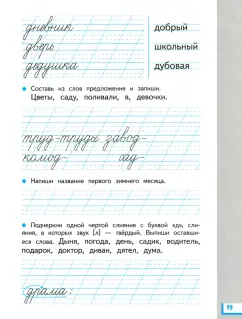 дневник добрый
дверь школьный
дедушка дубовая
Составь из слов предложение и запиши.
Цветы, саду, поливали, в, девочки.
труд-труды завод-
комод- сад-
Напиши название первого зимнего месяца.
Подчеркни одной чертой слияние с буквой «д», слия-
ния, в которых звук [д] — твёрдый. Выпиши оставши-
еся слова. Дыня, погода, день, садик, водитель,
подарок, доктор, диван, дятел, дума.
драма:
19